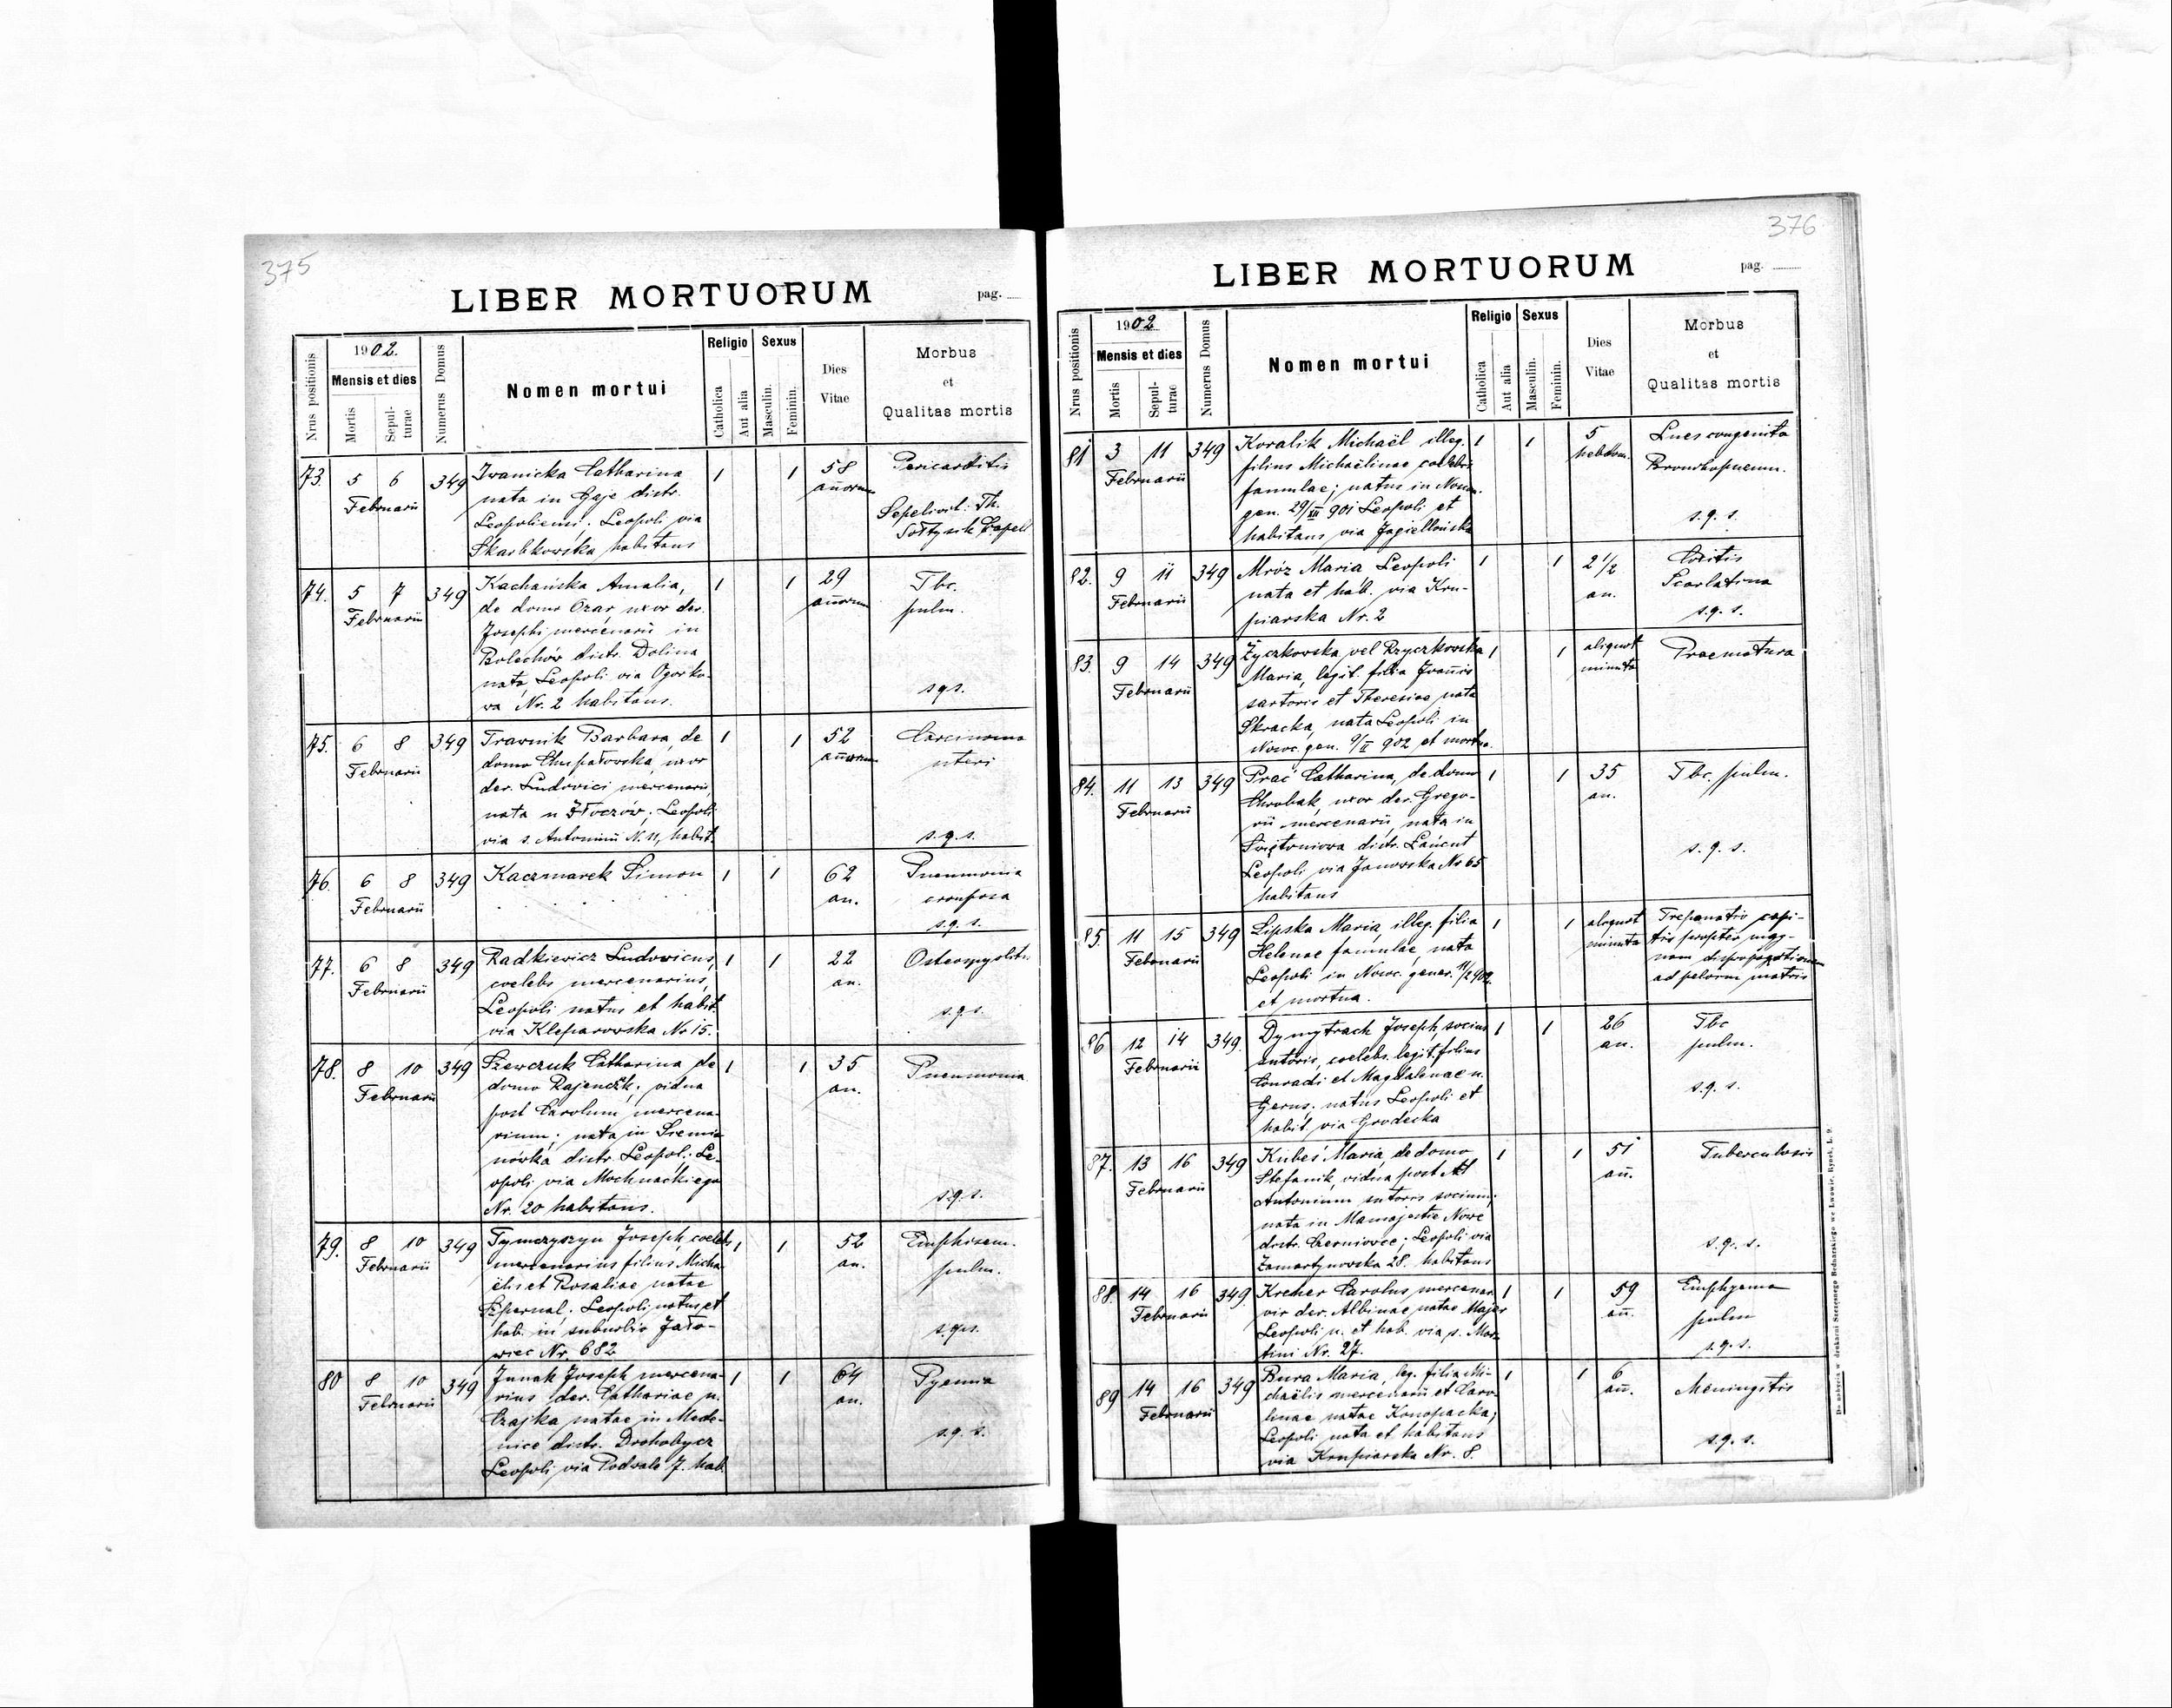 375
LIBER MORTUORUM
pag.
Nrus positionis
1902.
Mensis et dies
Mortis
Sepul-
turae
Numerus Domus
Nomen mortui
Religio
Catholica
Aut alia
Sexus
Masculin.
Feminin.
Dies
Vitae
Morbus
et
Qualitas mortis
73. 5 6 349 Iwanicka Catharina 1 1 58 Pericarditis
Februarii nata in Gaje distr. annorum
Leopoliensi. Leopoli via Sepelivit: Th.
Skarbkowska habitans Sołtysik Capell
74. 5 7 349 Kachańska Amalia, 1 1 29 Tbc.
Februarii de domo Ozar uxor der. annorum pulm.
Josephi mercenarii in
Bolechów distr. Dolina
nata, Leopoli via Ogorko-
wa Nr. 2 habitans. sqs.
75. 6 8 349 Travnik Barbara, de 1 1 52 Carcinoma
Februarii domo uxor annorum uteri
der. Ludovici mercenarii,
nata n Złoczów; Leopoli
via s. Antonini N. 11, habit. s.q.s.
76. 6 8 349 Kaczmarek Simon 1 1 62 Pneumonia
Februarii an. crouposa
s.q.s.
77. 6 8 349 Radkiewicz Ludovicus, 1 1 22
Februarii coelebs mercenarius, an.
Leopoli natus et habit. s.q.s.
via Kleparowska No 15.
78. 8 10 349 Szewczuk Catharina de 1 1 35 Pneumonia
Februarii domo vidua an.
post Carolum, mercena-
rium; nata in Siemia
nówka distr. Leopol: Le-
opoli via Mochnackiego s.q.s.
Nr. 20 habitans.
79. 8 10 349 Tymczyszyn Joseph, coelebs 1 1 52 Emphisem.
Februarii mercenarius filius Micha- an. pulm.
ëlis et Rosaliae natae
Leopoli natus et
hab. in suburbio Jało- s.q.s.
wiec Nr. 682
80 8 10 349 Junak Joseph mercena- 1 1 64 Pyemia
Februarii rius der. Cathariae n. an.
Czajka natae in Mede-
nice distr. Drohobycz s.q.s.
Leopoli via Podwale 7. hab.
376
LIBER MORTUORUM
pag.
Nrus positionis
1902
Mensis et dies
Mortis
Sepul-
turae
Numerus Domus
Nomen mortui
Religio
Catholica
Aut alia
Sexus
Masculin.
Feminin.
Dies
Vitae
Morbus
et
Qualitas mortis
81 3 11 349 Koralik Michaël illeg. 1 1 5 Lues congenita
Februarii filius Michaëlinae coelebis hebdom. Bronchopneum.
famulae; natus in Nosoc.
gen. 29/XII 901 Leopoli et s.q.s.
habitans via Jagiellońska
82. 9 11 349 Mróz Maria Leopoli 1 1 2 1/2
Februarii nata et hab. via Kru- an. Scarlatina
piarska Nr. 2 s.q.s.
83. 9 14 349 Życzkowska vel Ryczkowska 1 1 aliquot Praematura
Februarii Maria, legit. filia Joannis minuta
sartoris et Theresiae nata
Skracka, nata Leopoli in
Nosoc. gen. 9/II 902 et mortua.
84. 11 13 349 Prać Catharina, de domo 1 1 35 Tbc. pulm.
Februarii Chrobak, uxor der. Grego- an.
rii mercenarii, nata in
Świętoniowa distr. Łańcut s.q.s.
Leopoli via Janowska No 65
habitans
85. 11 15 349 Lipska Maria, illeg. filia 1 1 aliquot Trepanatio capi-
Februarii Helenae famulae, nata minuta tis propter mag-
Leopoli in Nosoc. gener. 11/2 902. nam disproportionem
et mortua. ad pelvim matris
86 12 14 349. Dymytrach Joseph, socius 1 1 26 Tbc
Februarii sutoris, coelebs, legit. filius an. pulm.
Conradi et Magdalenae n.
Gerus, natus Leopoli et s.q.s.
habit. via Grodecka
87. 13 16 349 Kubeś Maria, de domo 1 1 51 Tuberculosis
Februarii Stefanik, vidua post an.
Antonium sutoris socium;
nata in Mamajestie Nowe
distr. Czerniovce; Leopoli via s.q.s.
Zamartynovska 28. habitans
88. 14 16 349. Kremer Carolus mercenar 1 1 59 Emphyema
Februarii vir der. Albinae natae Majer an. pulm
Leopoli n. et hab. via s. Mar-
tini Nr. 27. s.q.s.
89 14 16 349 Bura Maria, leg. filia Mi- 1 1 6 Meningitis
Februarii chaëlis mercenarii et Caro- an.
linae natae Konopacka;
Leopoli nata et habitans s.q.s.
via Krupiarska Nr. 8.
Do nabycia w drukarni Szczęsnego Bednarskiego we Lwowie, Rynek, l. 9.